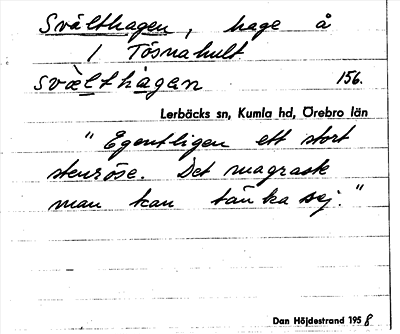 Svälthagen, hage å
1 Tösnahult
svä̀lthagan 156.
Lerbäcks sn, Kumla hd, Örebro län
"Egentligen ett stort
stenröse. Det magraste
man kan tänka sej."
Dan Höjdestrand 1958